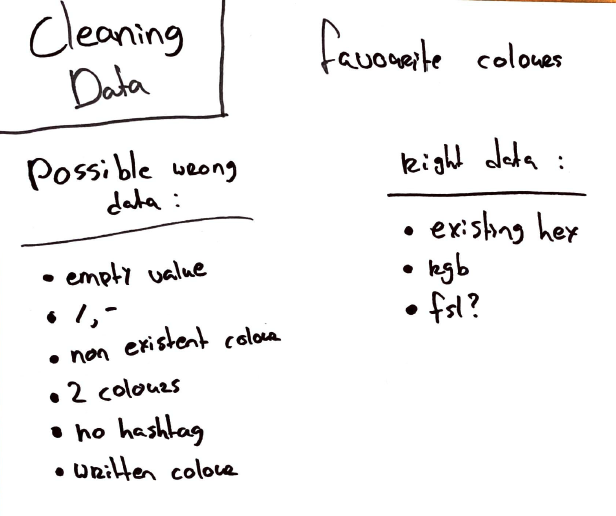 Cleaning
Data
favourite colours
Possible wrong
data :
• empty value
• /, -
• non existent colour
• 2 colours
• no hashtag
• written colour
Right data :
• existing hex
• rgb
• fsl?